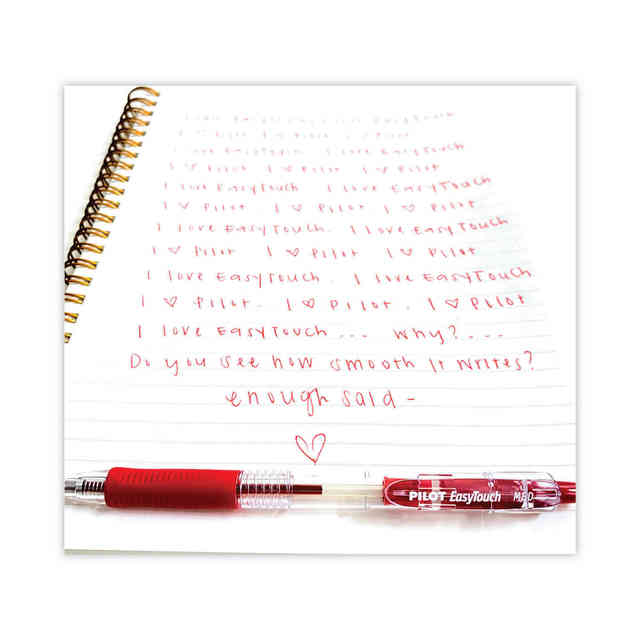 I love EasyTouch
I ♡ Pilot I ♡ Pilot I ♡ Pilot
I love EasyTouch I love EasyTouch
I ♡ Pilot I ♡ Pilot I ♡ Pilot
I love EasyTouch. I love EasyTouch
I ♡ Pilot I ♡ Pilot I ♡ Pilot
I love EasyTouch. I love EasyTouch
I ♡ Pilot. I ♡ Pilot. I ♡ Pilot
I love EasyTouch... Why?...
Do you see how smooth it writes?
enough said -
PILOT EasyTouch MED